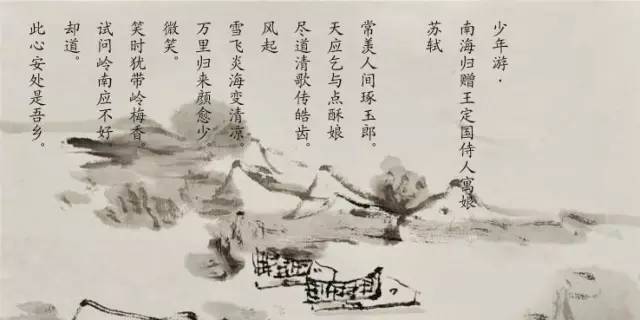 少年游·
南海归赠王定国侍人寓娘
苏轼
常羡人间琢玉郎。
天应乞与点酥娘
尽道清歌传皓齿。
风起
雪飞炎海变清凉。
万里归来颜愈少。
微笑。
笑时犹带岭梅香。
试问岭南应不好。
却道。
此心安处是吾乡。